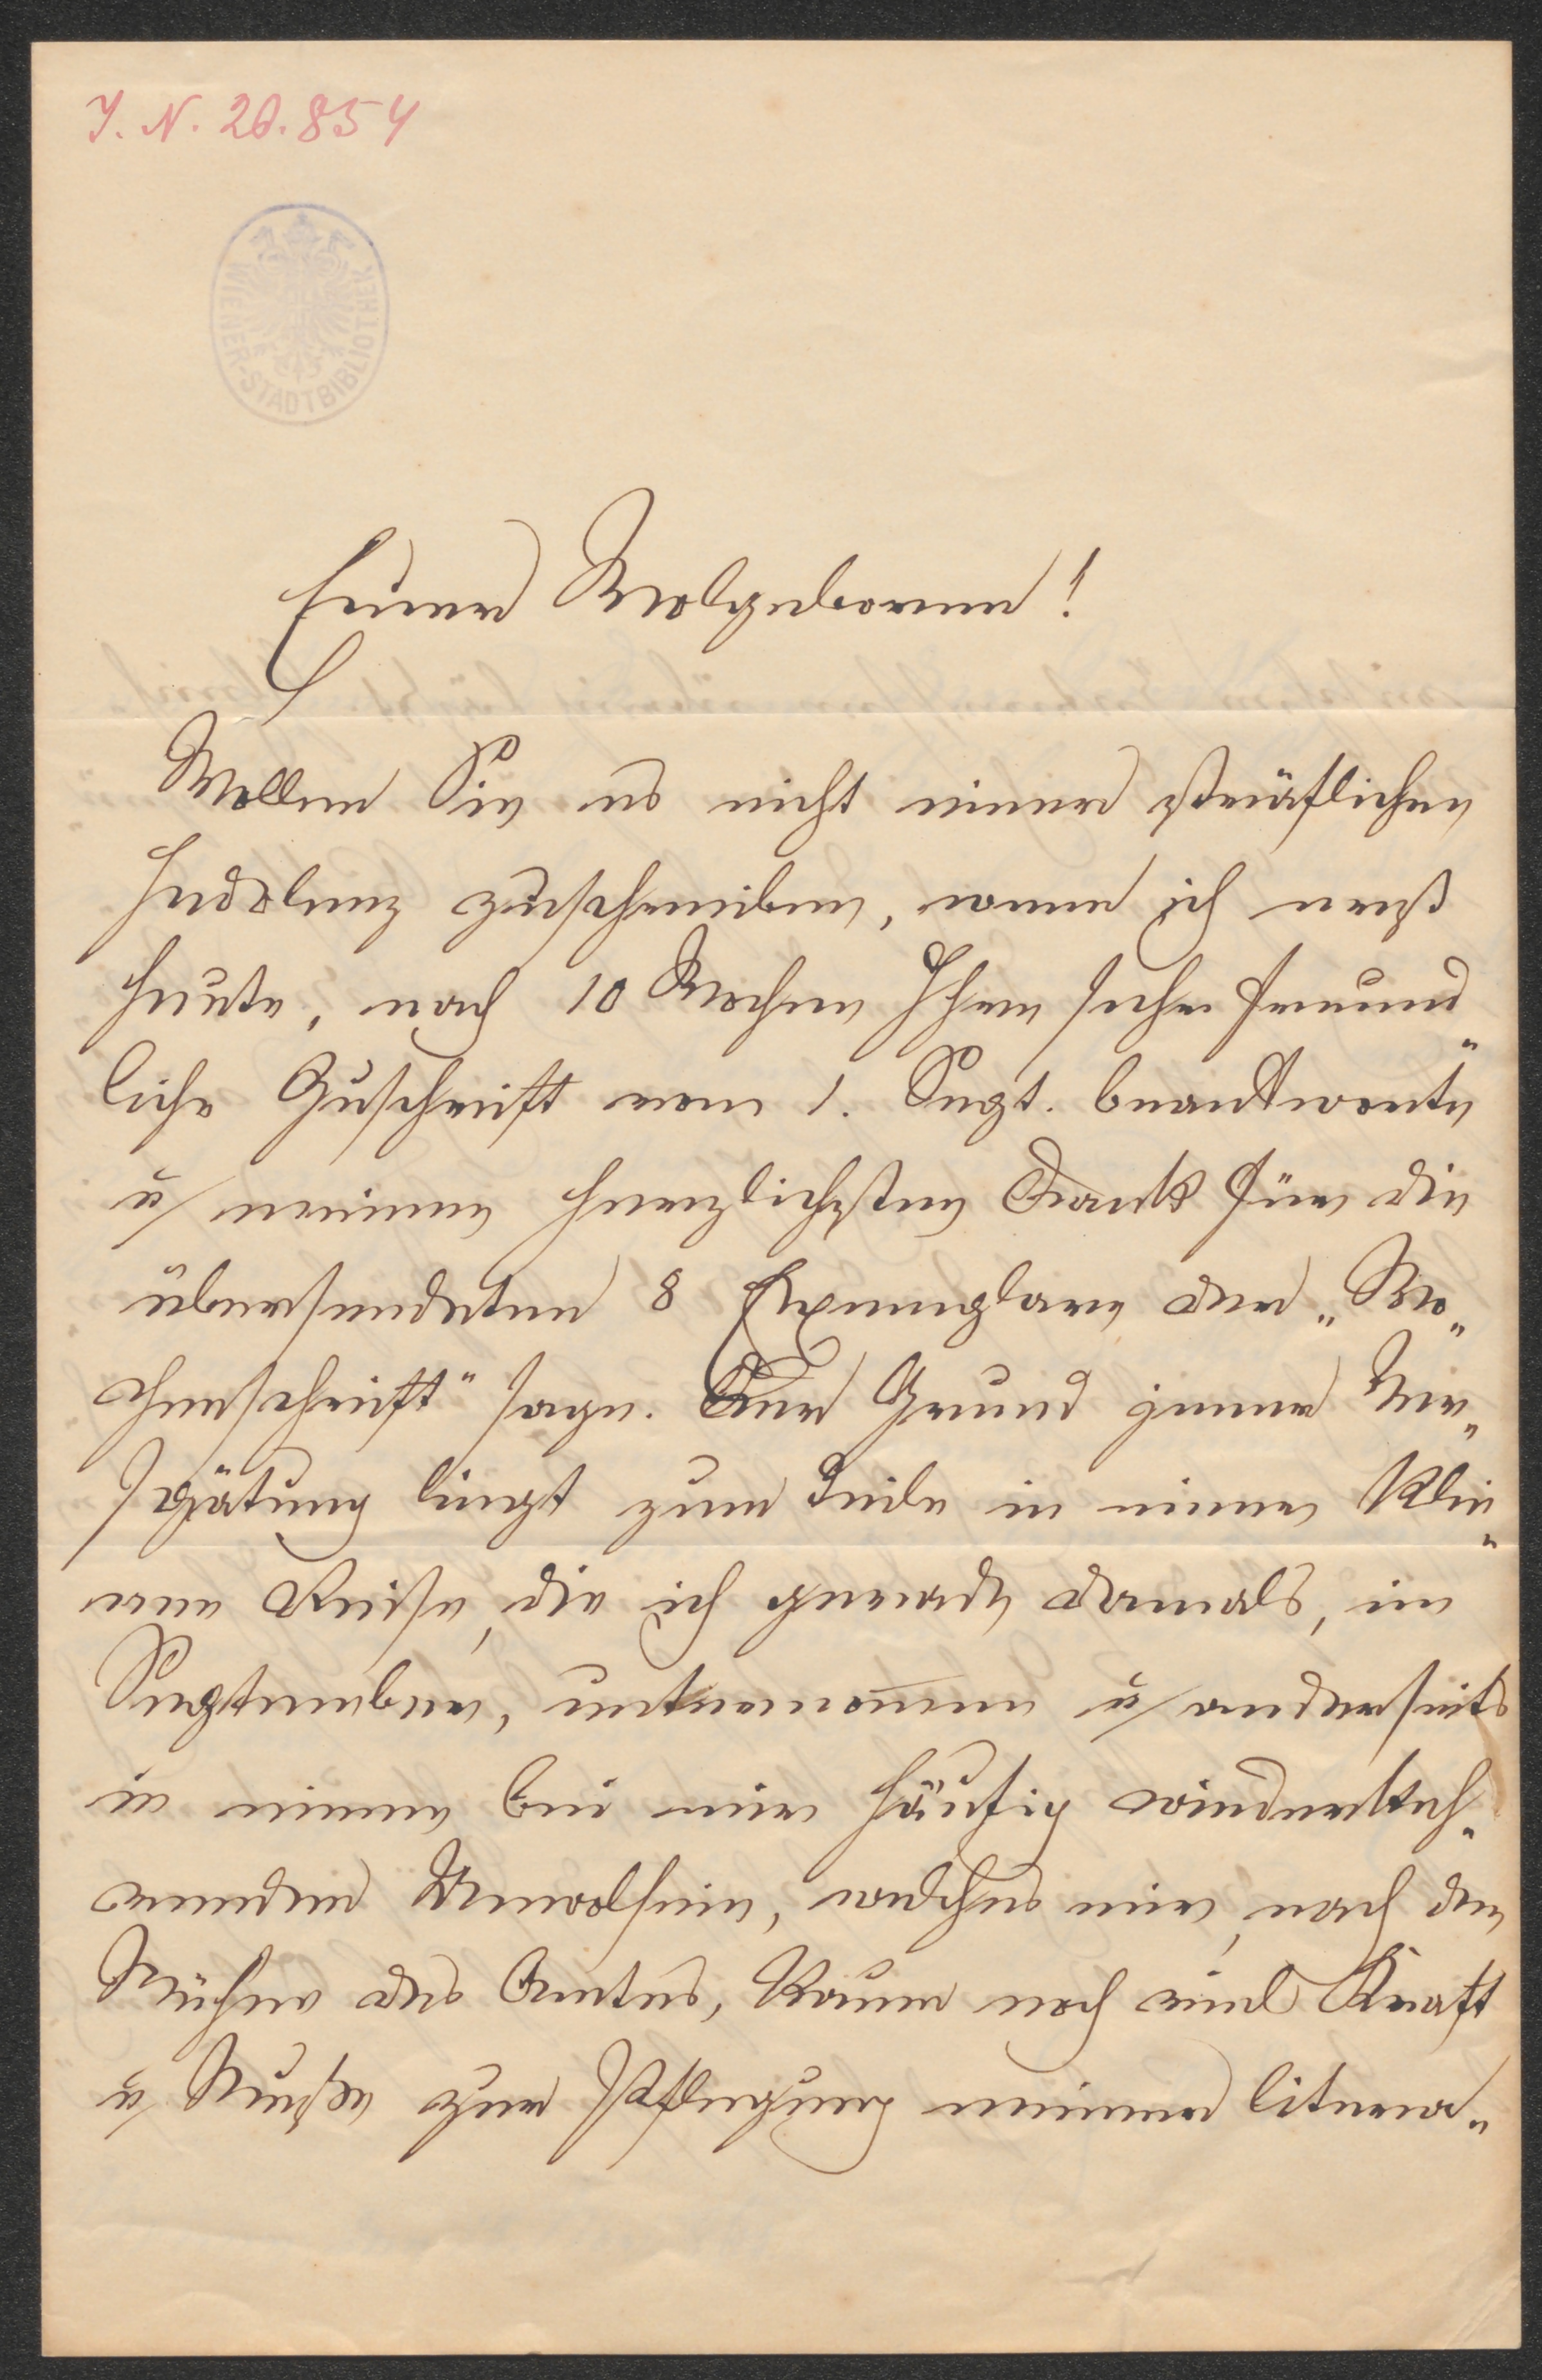 I. N. 20.854
WIENER-STADTBIBLIOTHEK
Euer Wolgeboren!
Wollen Sie es nicht einer sträflichen
Indolenz zuschreiben, wenn ich erst
heute, nach 10 Wochen Ihre sehr freund„
liche Zuschrift vom 1. Sept. beantworte
u meinen herzlichsten Dank für die
übersendeten 8 Exemplare der „Wo„
chenschrift" sage. Der Grund jener Ver„
spätung liegt zum Teile in einer klei„
nen Reise, die ich gerade damals, im
September, unternom̅en u anderseits
in einem bei mir häufig wiederkeh„
renden Unwolsein, welches mir, nach den
Mühen des Amtes, kaum noch viel Kraft
u Muße zur Pflegung meiner litera„